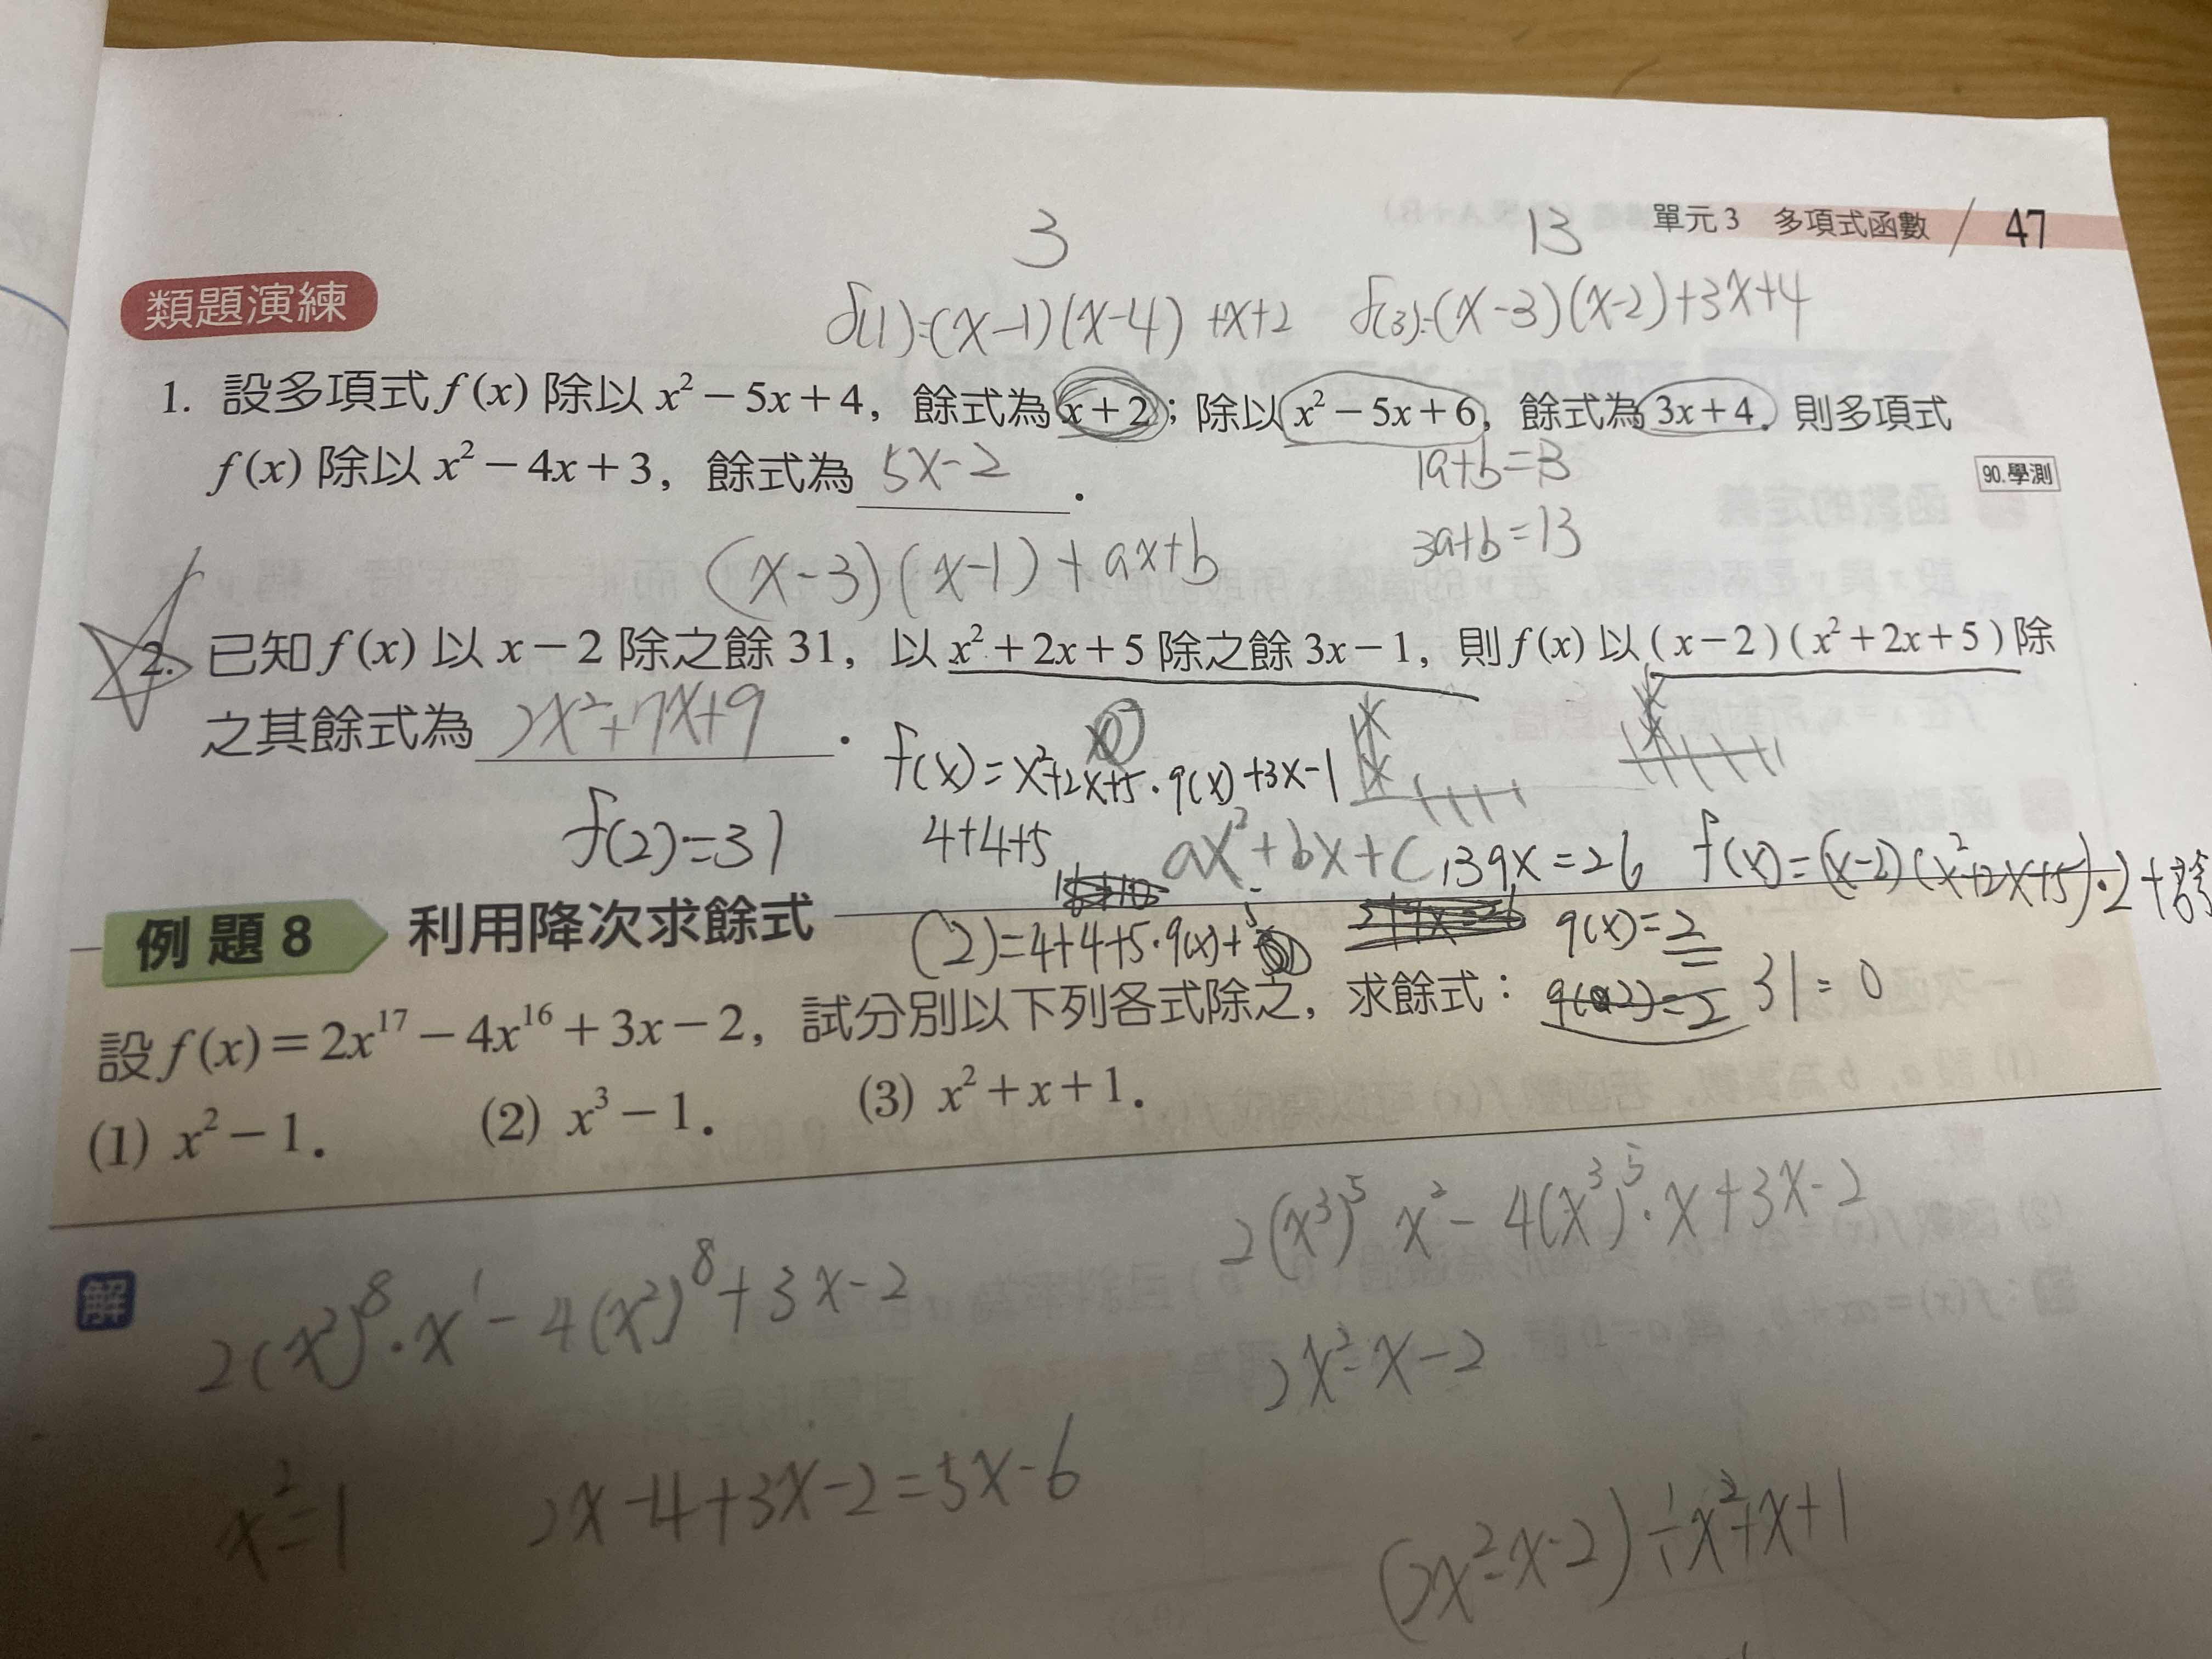 單元3 多項式函數 / 47
3 13
f(1)=(x-1)(x-4)+x+2 f(3)=(x-3)(x-2)+3x+4
類題演練
1. 設多項式f(x)除以x²-5x+4，餘式為x+2；除以x²-5x+6，餘式為3x+4．則多項式
f(x)除以x²-4x+3，餘式為 5x-2 ．
90.學測
1a+b=3
3a+b=13
(x-3)(x-1)+ax+b
2. 已知f(x)以x-2除之餘31，以x²+2x+5除之餘3x-1，則f(x)以(x-2)(x²+2x+5)除
之其餘式為 2x²+7x+9 ．
f(x)=x²+2x+5·q(x)+3x-1
f(2)=31
4+4+5
ax²+bx+c
139x=26
f(x)=(x-2)(x²+2x+5)·2+餘
(2)=4+4+5·q(x)+5
q(x)=2
q(2)=2
31=0
例題8 利用降次求餘式
設f(x)=2x¹⁷-4x¹⁶+3x-2，試分別以下列各式除之，求餘式：
(1) x²-1． (2) x³-1． (3) x²+x+1．
解
2(x²)⁸·x¹-4(x²)⁸+3x-2
2(x³)⁵x²-4(x³)⁵·x+3x-2
2x²-x-2
x²=1 2x-4+3x-2=5x-6
(2x²-x-2)÷x²+x+1